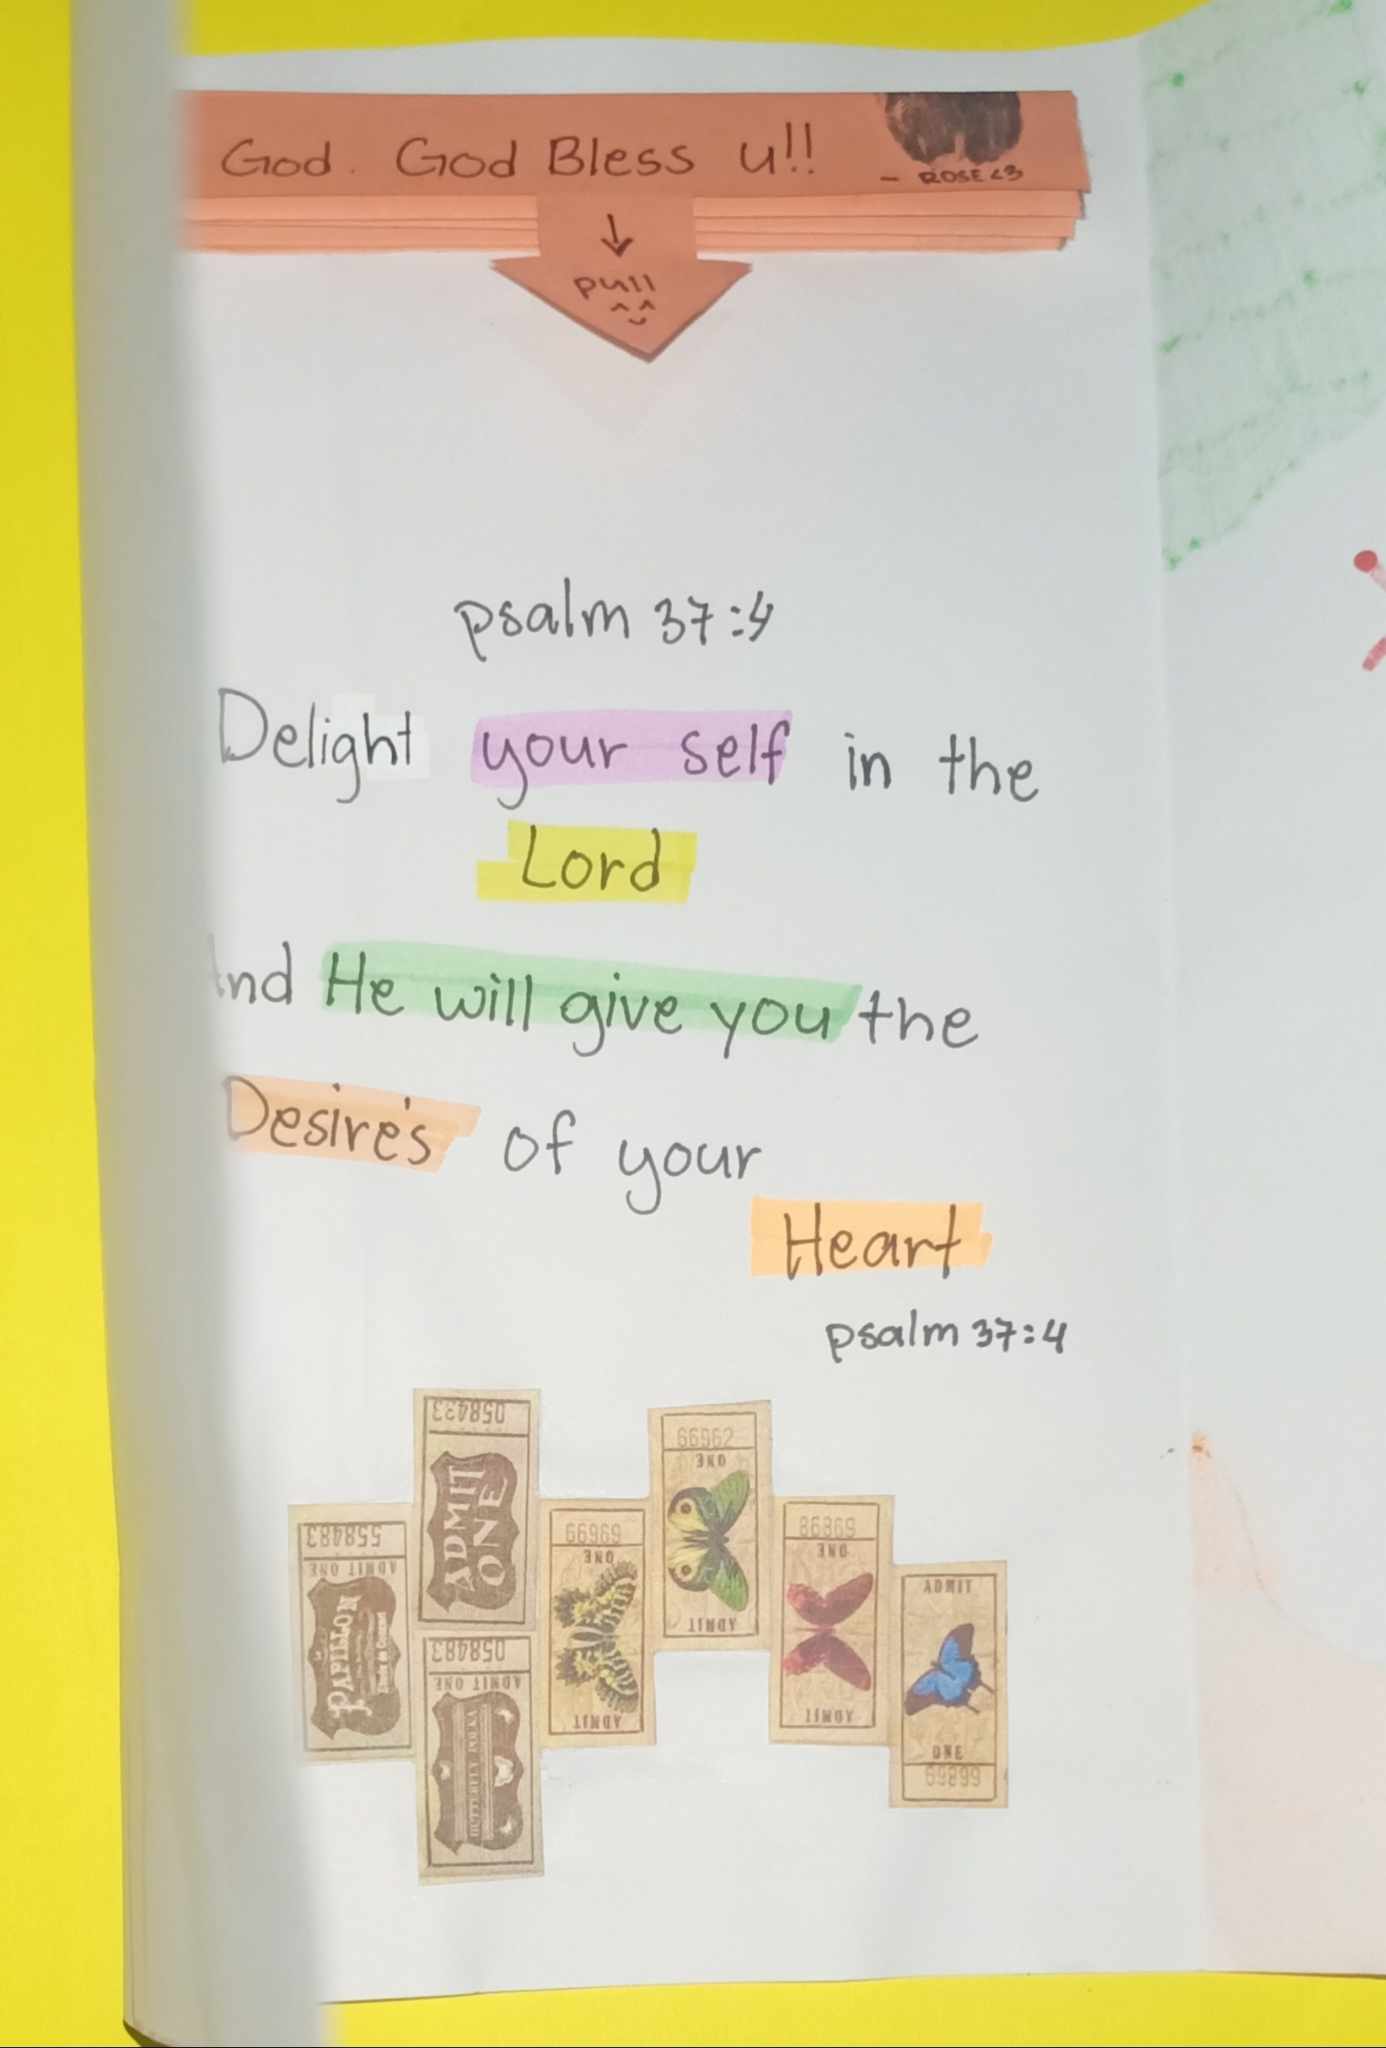 God. God Bless u!!
- ROSE <3
↓
pull
psalm 37:4
Delight your self in the
Lord
And He will give you the
Desire's of your
Heart
psalm 37:4
058483
ADMIT
ONE
558483
ADMIT ONE
PAPILLON
058483
ADMIT ONE
69969
ONE
ADMIT
66962
ONE
ADMIT
86869
ONE
ADMIT
ADMIT
ONE